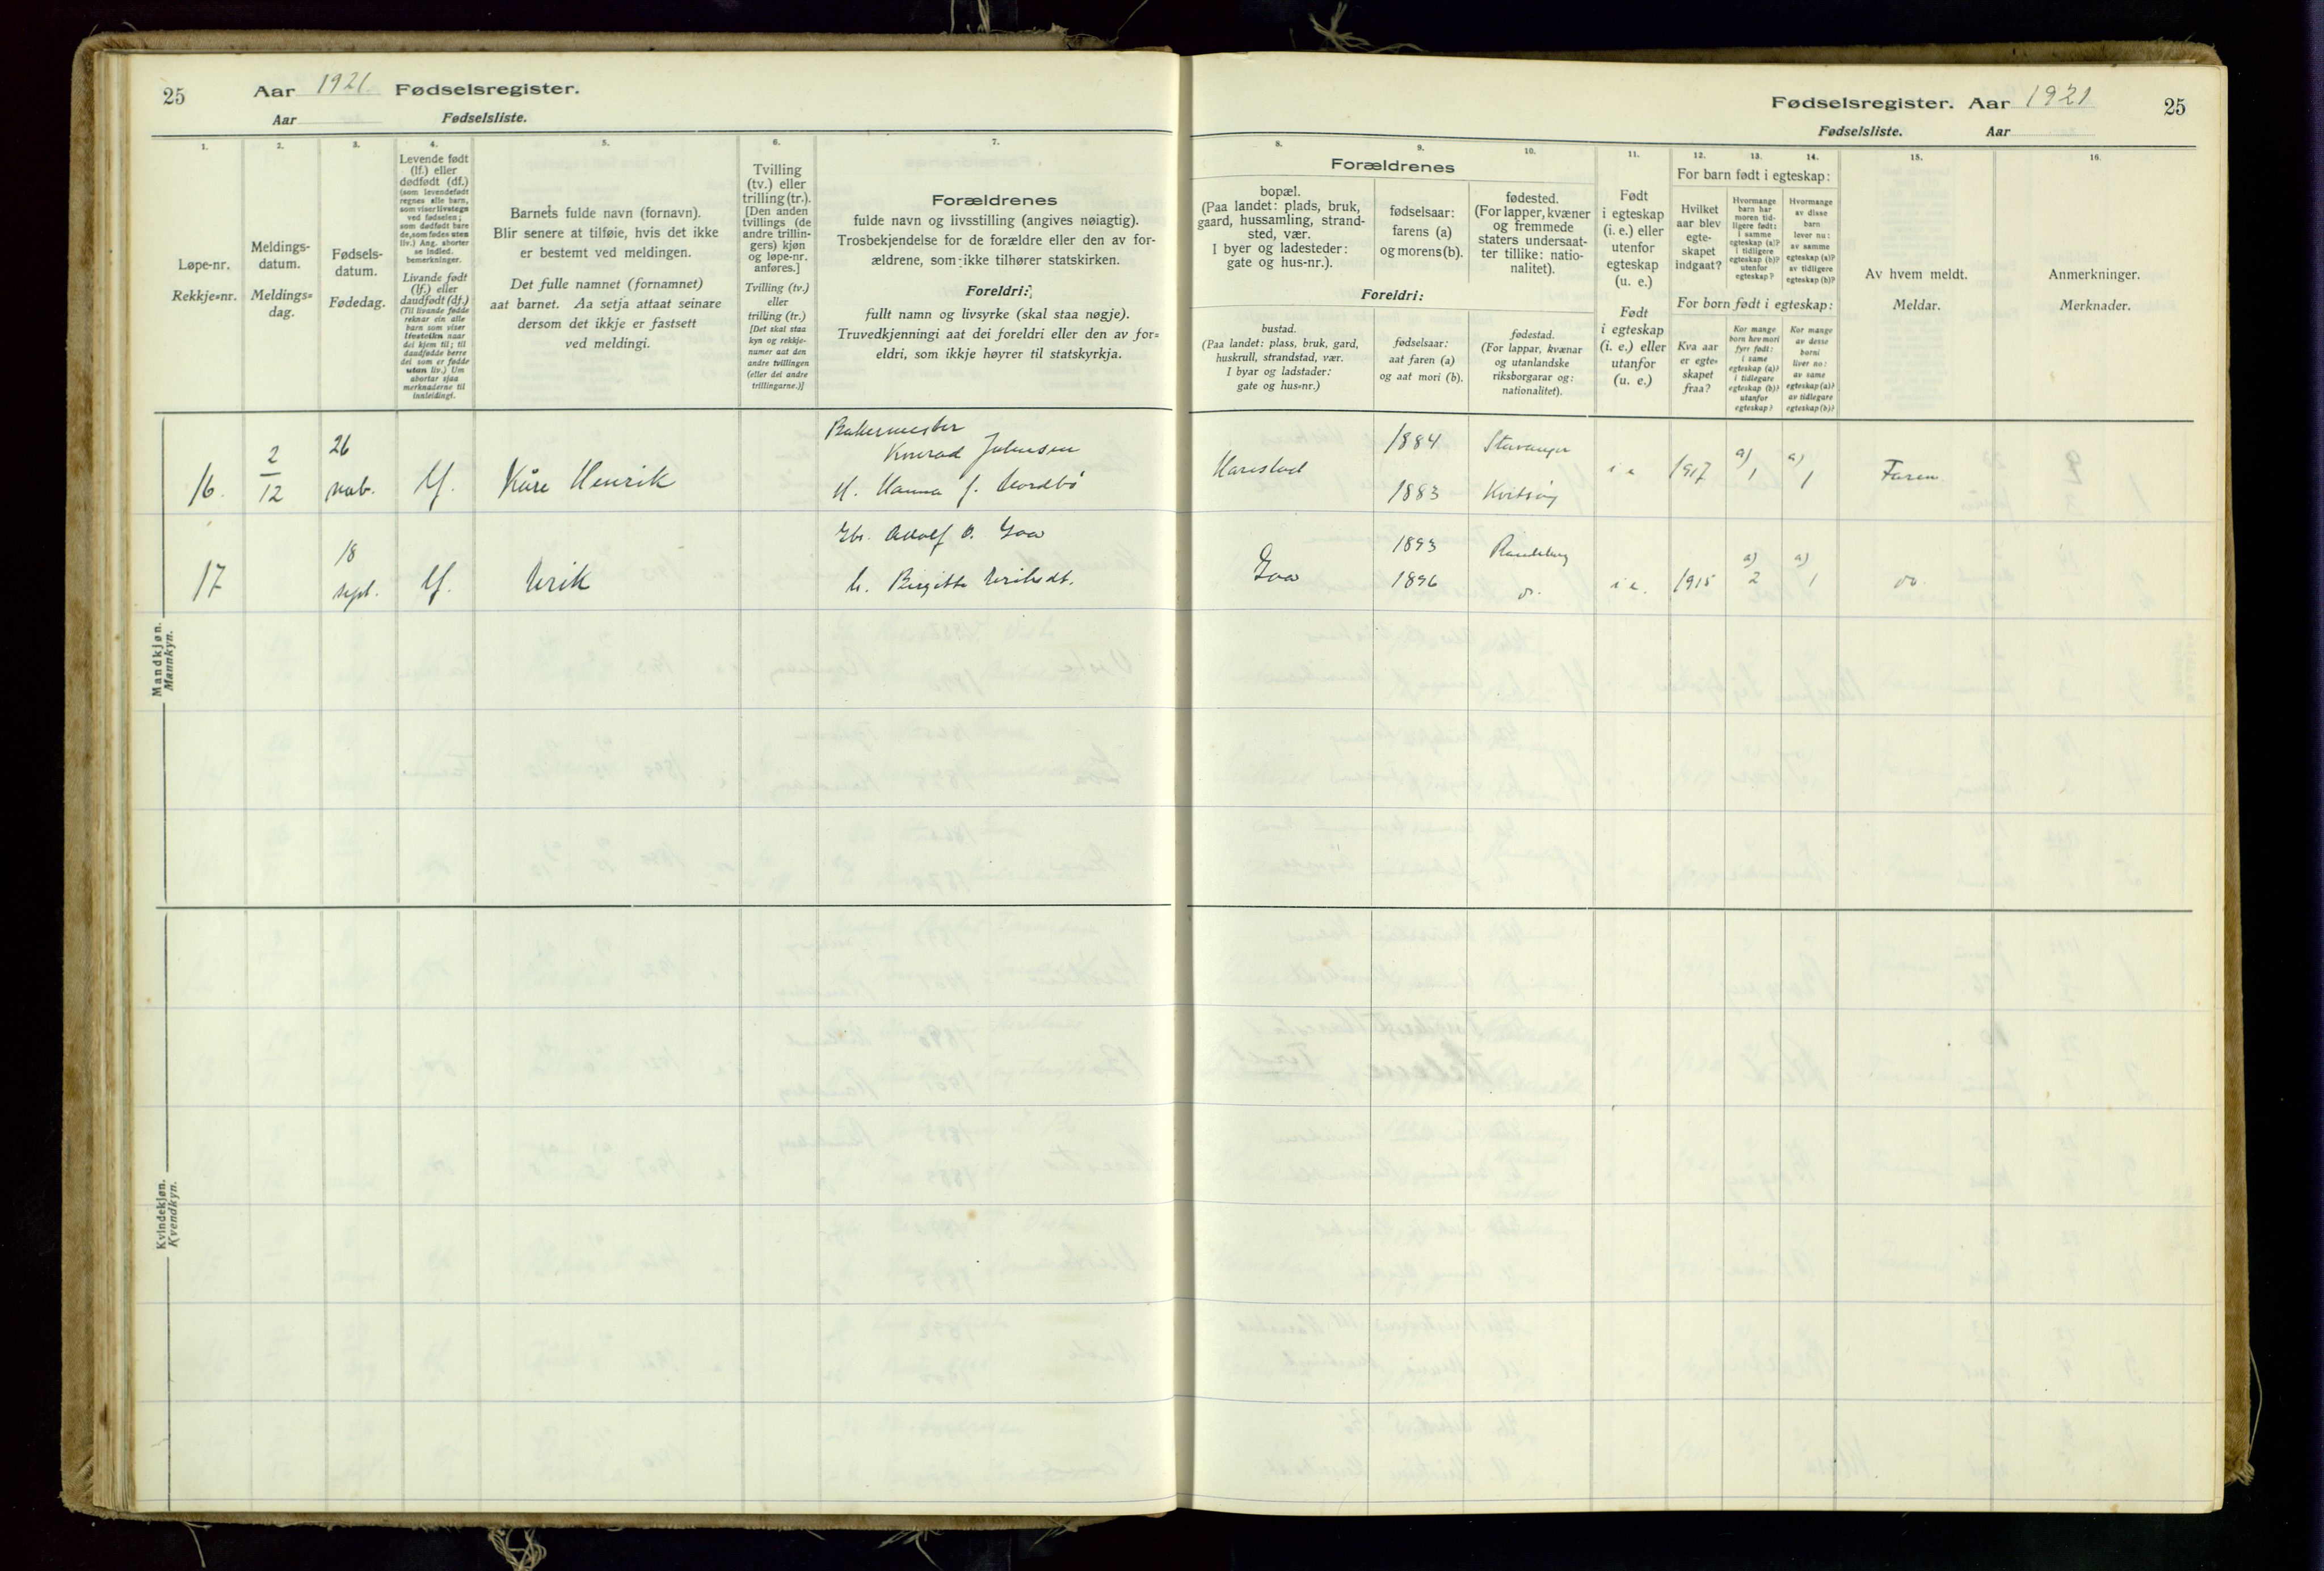 25 Aar 1921. Fødselsregister.
Aar Fødselsliste.
1. 2. 3. 4. 5. 6. 7.
Løpe-nr.
Rekkje=nr.
Meldings-
datum.
Meldings=
dag.
Fødsels-
datum.
Fødedag.
Levende født
(lf.) eller
dødfødt (df.)
(som levendefødt
regnes alle barn,
som viser livstegn
ved fødselen;
som dødfødt bare
de, som fødes uten
liv.) Ang. aborter
se indled.
bemerkninger.
Livande født
(lf.) eller
daudfødt (df.)
(Til livande fødde
reknar ein alle
barn som viser
livsteikn naar
dei kjem til; til
daudfødde berre
dei som er fødde
utan liv.) Um
abortar sjaa
merknaderne til
innleidingi.
Barnets fulde navn (fornavn).
Blir senere at tilføie, hvis det ikke
er bestemt ved meldingen.
Det fulle namnet (fornamnet)
aat barnet. Aa setja attaat seinare
dersom det ikkje er fastsett
ved meldingi.
Tvilling
(tv.) eller
trilling (tr.).
[Den anden
tvillings (de
andre trillin-
gers) kjøn
og løpe-nr.
anføres.]
Tvilling (tv.)
eller
trilling (tr.)
[Det skal staa
kyn og rekkje-
numer aat den
andre tvillingen
(eller dei andre
trillingarne.)]
Forældrenes
fulde navn og livsstilling (angives nøiagtig).
Trosbekjendelse for de forældre eller den av for-
ældrene, som ikke tilhører statskirken.
Foreldri:
fullt namn og livsyrke (skal staa nøgje).
Truvedkjenningi aat dei foreldri eller den av for=
eldri, som ikkje høyrer til statskyrkja.
Mandkjøn.
Mannkyn.
16. 2/12 26 nov. lf. Kåre Henrik
Bakermester
Konrad Johnsen
H. Hanna f. Nordbö
17 18 sept. lf. Erik
Gbr. Adolf O. Goa
H. Birgitte Eriksdt.
Kvindekjøn.
Kvendkyn.
Fødselsregister. Aar 1921 25
Fødselsliste. Aar
8. 9. 10. 11. 12. 13. 14. 15. 16.
Forældrenes
bopæl.
(Paa landet: plads, bruk,
gaard, hussamling, strand-
sted, vær.
I byer og ladesteder:
gate og hus-nr.).
fødselsaar:
farens (a)
og morens (b).
fødested.
(For lapper, kvæner
og fremmede
staters undersaat-
ter tillike: natio-
nalitet).
Foreldri:
bustad.
(Paa landet: plass, bruk, gard,
huskrull, strandstad, vær.
I byar og ladstader:
gate og hus=nr.)
fødselsaar:
aat faren (a)
og aat mori (b).
fødestad.
(For lappar, kvænar
og utanlandske
riksborgarar og:
nationalitet).
Født
i egteskap
(i. e.) eller
utenfor
egteskap
(u. e.)
Født
i egteskap
(i. e.) eller
utanfor
(u. e.)
For barn født i egteskap:
Hvilket
aar blev
egte-
skapet
indgaat?
Hvormange
barn har
moren tid-
ligere født:
i samme
egteskap (a)?
i tidligere
egteskap (b)?
utenfor
egteskap?
Hvormange
av disse
barn
lever nu:
av samme
egteskap (a)?
av tidligere
egteskap (b)?
For born født i egteskap:
Kva aar
er egte=
skapet
fraa?
Kor mange
born hev mori
fyrr født:
i same
egteskap (a)?
i tidlegare
egteskap (b)?
utanfor
egteskap?
Kor mange
av desse
borni
liver no:
av same
egteskap (a)?
av tidlegare
egteskap (b)?
Av hvem meldt.
Meldar.
Anmerkninger.
Merknader.
Harestad 1884 Stavanger i e 1917 a) 1 a) 1 Faren
1883 Kvitsöy
Goa 1893 Randeberg i e. 1915 a) 2 a) 1 do
1896 do.